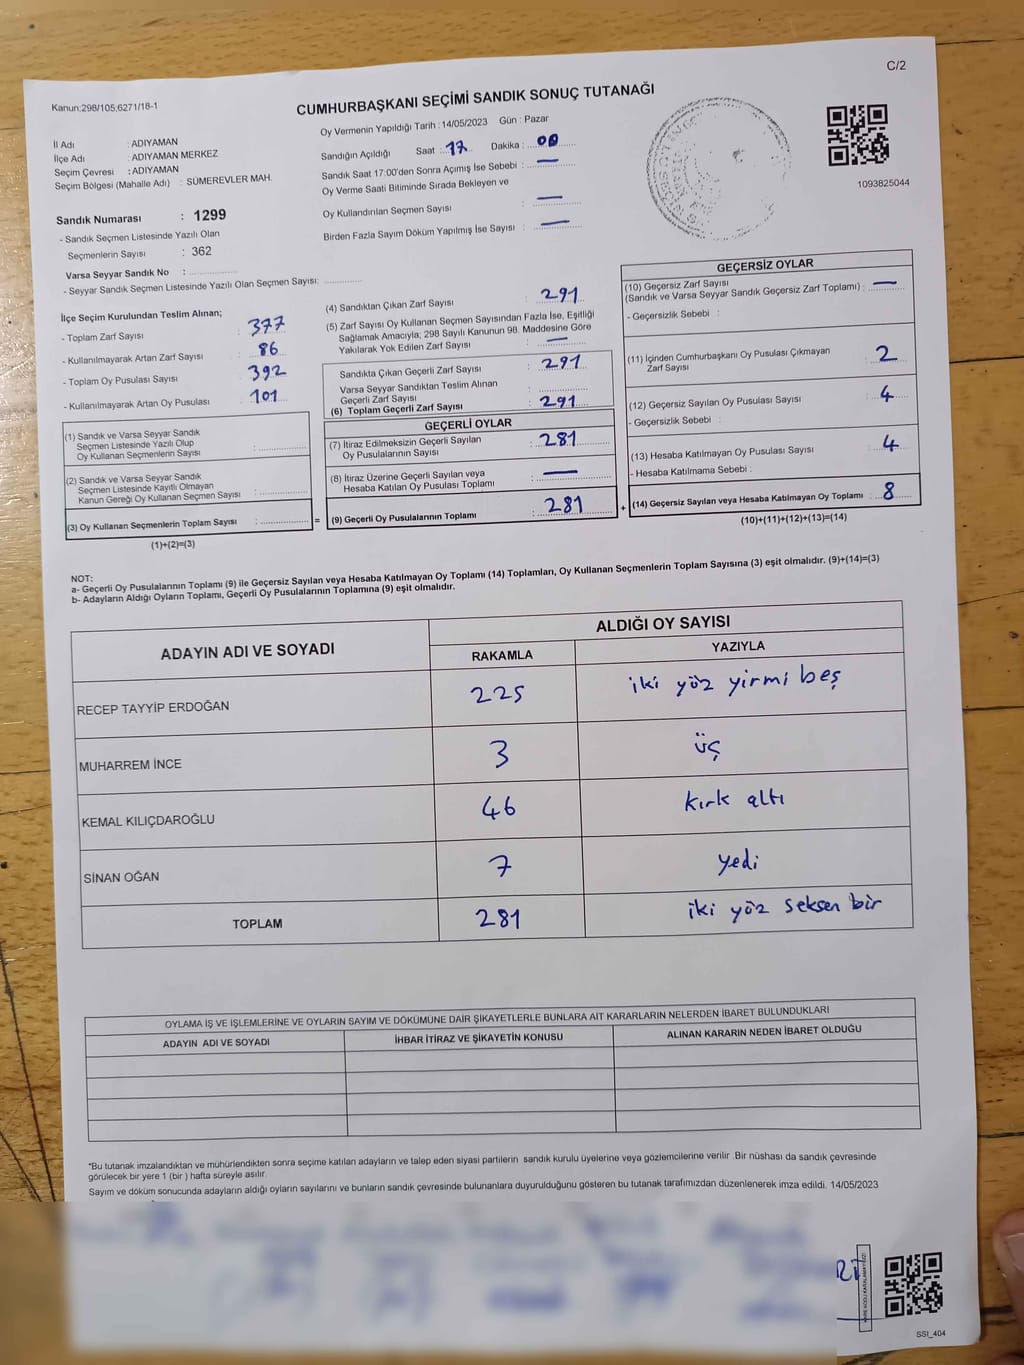 C/2
Kanun:298/105;6271/18-1
CUMHURBAŞKANI SEÇİMİ SANDIK SONUÇ TUTANAĞI
İl Adı : ADIYAMAN
İlçe Adı : ADIYAMAN MERKEZ
Seçim Çevresi : ADIYAMAN
Seçim Bölgesi (Mahalle Adı) : SÜMEREVLER MAH.
Sandık Numarası : 1299
- Sandık Seçmen Listesinde Yazılı Olan
Seçmenlerin Sayısı : 362
Varsa Seyyar Sandık No :
- Seyyar Sandık Seçmen Listesinde Yazılı Olan Seçmen Sayısı:
Oy Vermenin Yapıldığı Tarih : 14/05/2023 Gün : Pazar
Sandığın Açıldığı Saat : 17 Dakika : 00
Sandık Saat 17:00'den Sonra Açımış İse Sebebi : —
Oy Verme Saati Bitiminde Sırada Bekleyen ve
Oy Kullandırılan Seçmen Sayısı —
Birden Fazla Sayım Döküm Yapılmış İse Sayısı : —
1093825044
İlçe Seçim Kurulundan Teslim Alınan;
- Toplam Zarf Sayısı : 377
- Kullanılmayarak Artan Zarf Sayısı : 86
- Toplam Oy Pusulası Sayısı : 392
- Kullanılmayarak Artan Oy Pusulası : 101
(1) Sandık ve Varsa Seyyar Sandık
Seçmen Listesinde Yazılı Olup
Oy Kullanan Seçmenlerin Sayısı :
(2) Sandık ve Varsa Seyyar Sandık
Seçmen Listesinde Kayıtlı Olmayan
Kanun Gereği Oy Kullanan Seçmen Sayısı :
(3) Oy Kullanan Seçmenlerin Toplam Sayısı : =
(1)+(2)=(3)
(4) Sandıktan Çıkan Zarf Sayısı : 291
(5) Zarf Sayısı Oy Kullanan Seçmen Sayısından Fazla İse, Eşitliği
Sağlamak Amacıyla; 298 Sayılı Kanunun 98. Maddesine Göre
Yakılarak Yok Edilen Zarf Sayısı : —
Sandıkta Çıkan Geçerli Zarf Sayısı : 291
Varsa Seyyar Sandıktan Teslim Alınan
Geçerli Zarf Sayısı :
(6) Toplam Geçerli Zarf Sayısı : 291
GEÇERLİ OYLAR
(7) İtiraz Edilmeksizin Geçerli Sayılan
Oy Pusulalarının Sayısı : 281
(8) İtiraz Üzerine Geçerli Sayılan veya
Hesaba Katılan Oy Pusulası Toplamı : —
(9) Geçerli Oy Pusulalarının Toplamı : 281 +
GEÇERSİZ OYLAR
(10) Geçersiz Zarf Sayısı
(Sandık ve Varsa Seyyar Sandık Geçersiz Zarf Toplamı) : —
- Geçersizlik Sebebi :
(11) İçinden Cumhurbaşkanı Oy Pusulası Çıkmayan
Zarf Sayısı : 2
(12) Geçersiz Sayılan Oy Pusulası Sayısı : 4
- Geçersizlik Sebebi :
(13) Hesaba Katılmayan Oy Pusulası Sayısı : 4
- Hesaba Katılmama Sebebi :
(14) Geçersiz Sayılan veya Hesaba Katılmayan Oy Toplamı : 8
(10)+(11)+(12)+(13)=(14)
NOT:
a- Geçerli Oy Pusulalarının Toplamı (9) ile Geçersiz Sayılan veya Hesaba Katılmayan Oy Toplamı (14) Toplamları, Oy Kullanan Seçmenlerin Toplam Sayısına (3) eşit olmalıdır. (9)+(14)=(3)
b- Adayların Aldığı Oyların Toplamı, Geçerli Oy Pusulalarının Toplamına (9) eşit olmalıdır.
ADAYIN ADI VE SOYADI
ALDIĞI OY SAYISI
RAKAMLA YAZIYLA
RECEP TAYYİP ERDOĞAN 225 iki yöz yirmi beş
MUHARREM İNCE 3 üç
KEMAL KILIÇDAROĞLU 46 kırk altı
SİNAN OĞAN 7 yedi
TOPLAM 281 iki yöz seksen bir
OYLAMA İŞ VE İŞLEMLERİNE VE OYLARIN SAYIM VE DÖKÜMÜNE DAİR ŞİKAYETLERLE BUNLARA AİT KARARLARIN NELERDEN İBARET BULUNDUKLARI
ADAYIN ADI VE SOYADI İHBAR İTİRAZ VE ŞİKAYETİN KONUSU ALINAN KARARIN NEDEN İBARET OLDUĞU
*Bu tutanak imzalandıktan ve mühürlendikten sonra seçime katılan adayların ve talep eden siyasi partilerin sandık kurulu üyelerine veya gözlemcilerine verilir .Bir nüshası da sandık çevresinde
görülecek bir yere 1 (bir ) hafta süreyle asılır.
Sayım ve döküm sonucunda adayların aldığı oyların sayılarını ve bunların sandık çevresinde bulunanlara duyurulduğunu gösteren bu tutanak tarafımızdan düzenlenerek imza edildi. 14/05/2023
SSI_404